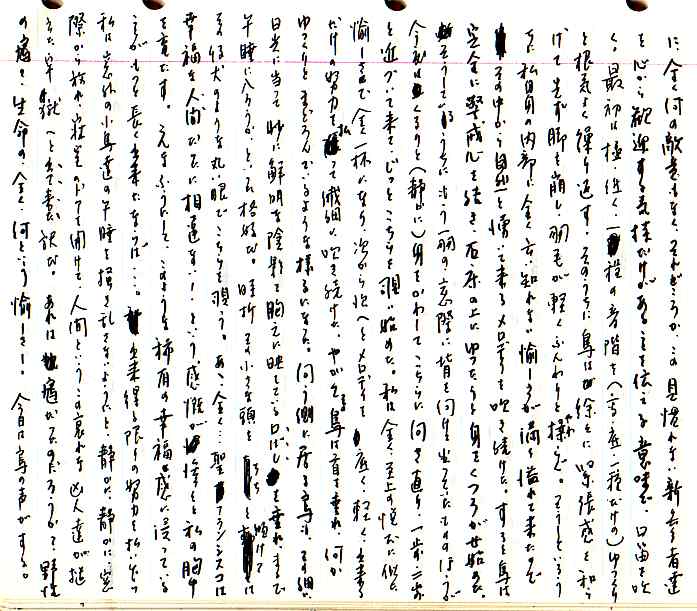 に、全く何の敵意もなく、それどころか、この見慣れない新参者達
を心から歓迎する気持だけがあることを伝える意味で、口笛を吹
く。最初は極く低く、一種の音階を(高・底一種だけの)ゆっくり
と根気よく繰り返す。そのうちに鳥は徐々に緊張感を和ら
げて先ず脚を崩し、羽毛が軽くふんわりと
私自身の内部に全く言い知れない愉しさが満ち溢れて来たので
その中から自然と湧いて来るメロディを吹き続けた。すると鳥は
完全に警戒心を解き、石原の上にゆったりと身をくつろがせ始めた。
そうしているうちに、もう一羽の、窓際に背を向けて坐っていたのはうが
今度はくるりと(静かに)身をかわしてこちらに向き直り、一歩二歩
と近づいて来て、じっとこちらを覗い始めた。私は全く至上の悦びに似た
愉しさで全く一杯になり、次から次へとメロディを底く、軽く、出来る
だけの努力を払って繊細に吹き続けた。やがて鳥は首を垂れ、何か
ゆっくりとまどろんでいるような様子になった。向う側に居る鳥も、その細い
日光に当って妙に鮮明な陰影を胸元に映している口ばしを垂れ、まるで
午睡に入ろうか、といった格好だ。時折、その小さな頭を傾けて
子供のような丸い眼でこちらを覗う。あゝ全く…聖フランシスコは
幸福な人間だったに相違ない!という感慨が惨々と私の胸中
を充たす。そんなふうにして、このような稀有の幸福感に浸っている
ことがもっと長く出来たならば…。出来得る限りの努力を払いながら
私は窓外の小鳥達の午睡を掻き乱さないようにと静かに、静かに窓
際から離れ、寝室のドアを開けて、人間というこの哀れな囚人達が
牢獄へと出て来た訳だ。あれは鳩だったのだろうか?野性
の鳩!生命の、全く何という愉しさ!今日は鳥の声がする。